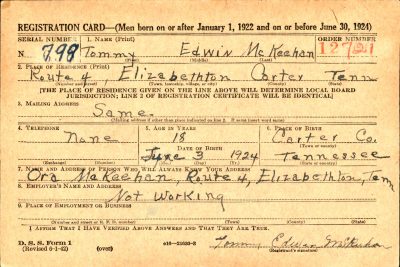 REGISTRATION CARD—(Men born on or after January 1, 1922 and on or before June 30, 1924)
SERIAL NUMBER 1. NAME (Print) ORDER NUMBER
N 798 Tommy Edwin McKeehan
(First) (Middle) (Last)
2. PLACE OF RESIDENCE (Print)
Route 4 Elizabethton Carter Tenn
(Town, township, village, or city) (County) (State)
[THE PLACE OF RESIDENCE GIVEN ON THE LINE ABOVE WILL DETERMINE LOCAL BOARD
JURISDICTION; LINE 2 OF REGISTRATION CERTIFICATE WILL BE IDENTICAL]
3. MAILING ADDRESS
Same.
[Mailing address if other than place indicated on line 2. If same insert word same]
4. TELEPHONE 5. AGE IN YEARS 6. PLACE OF BIRTH
None 18 Carter Co.
DATE OF BIRTH (Town or county)
June 3 1924 Tennessee
(Exchange) (Number) (Mo.) (Day) (Yr.) (State or country)
7. NAME AND ADDRESS OF PERSON WHO WILL ALWAYS KNOW YOUR ADDRESS
Ora McKeehan, Route 4, Elizabethton, Tenn
8. EMPLOYER'S NAME AND ADDRESS
Not Working
9. PLACE OF EMPLOYMENT OR BUSINESS
(Number and street or R. F. D. number) (Town) (County) (State)
I AFFIRM THAT I HAVE VERIFIED ABOVE ANSWERS AND THAT THEY ARE TRUE.
D. S. S. Form 1
(Revised 6-1-42) (over) Tommy Edwin McKeehan
(Registrant's signature)